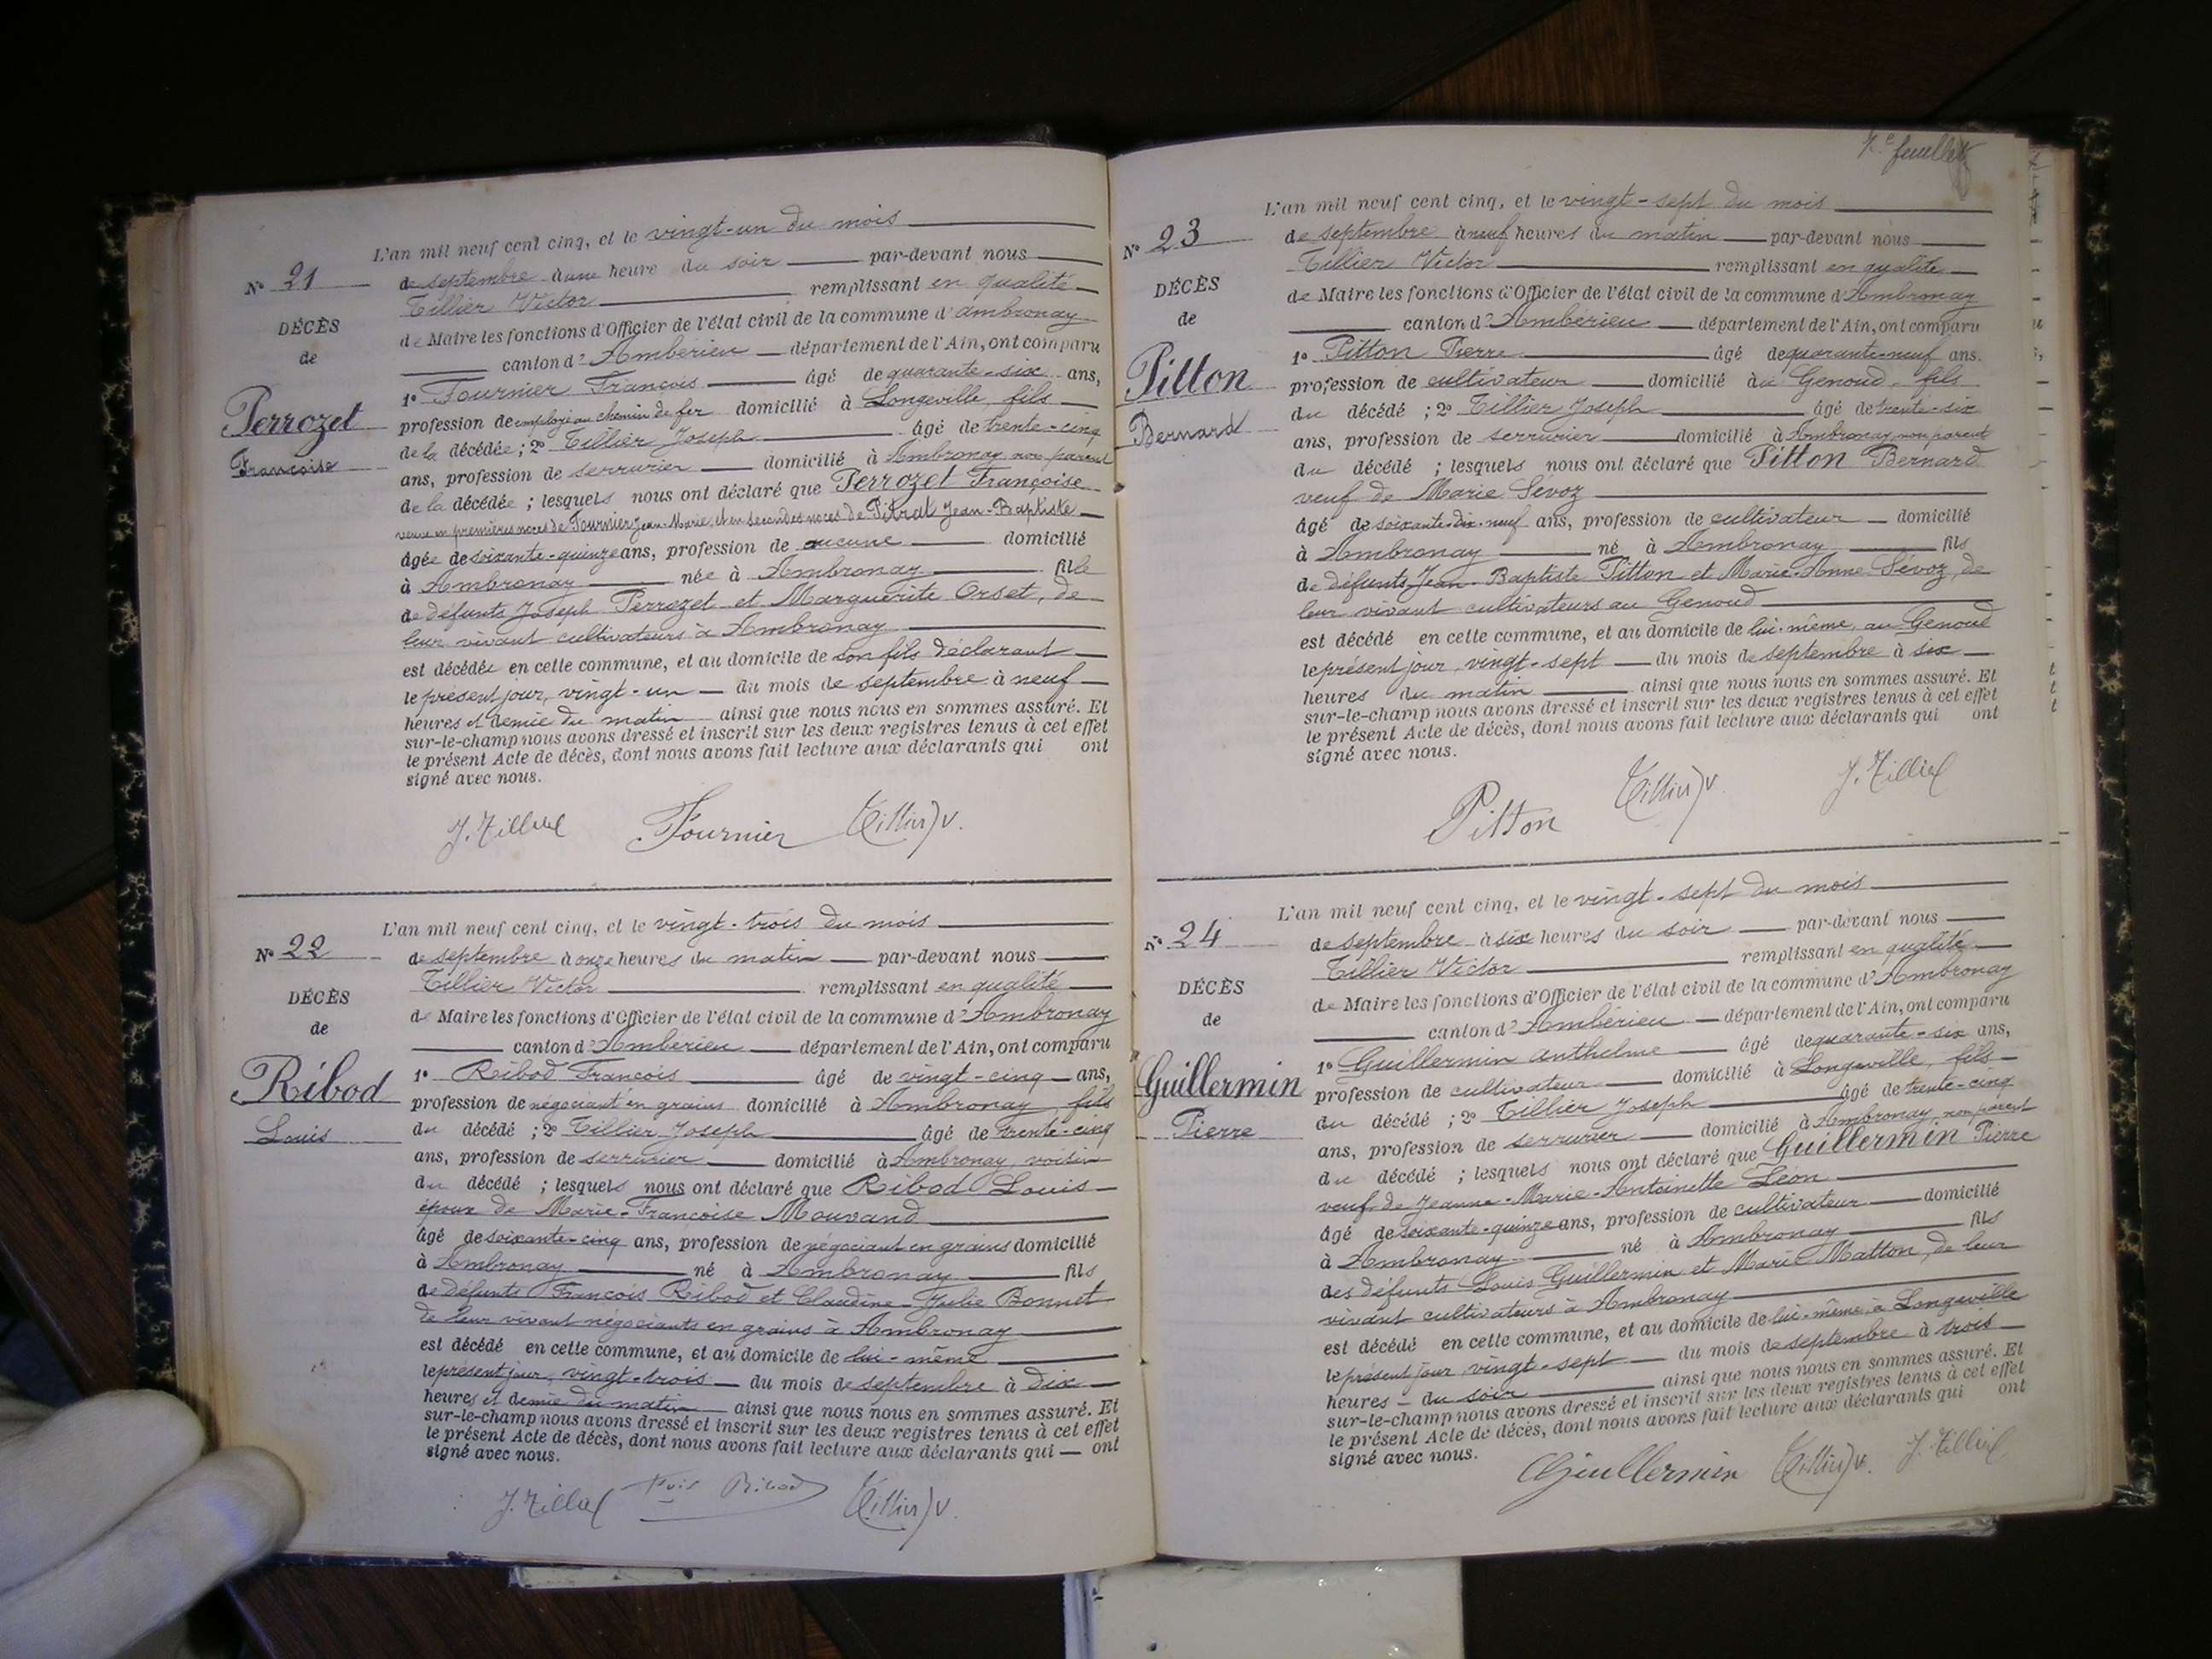 Nº 21
DÉCÈS
de
Perrozet
Françoise
L'an mil neuf cent cinq, et le vingt-un du mois
de septembre à une heure du soir par-devant nous
Tillier Victor remplissant en qualité
de Maire les fonctions d'Officier de l'état civil de la commune d'Ambronay
canton d'Ambérieu département de l'Ain, ont comparu
1º Fournier François âgé de quarante-six ans,
profession de employé au chemin de fer domicilié à Longeville, fils
de la décédée ; 2º Tillier Joseph âgé de trente-cinq
ans, profession de serrurier domicilié à Ambronay non parent
de la décédée ; lesquels nous ont déclaré que Perrozet Françoise
veuve en premières noces de Fournier Jean-Marie et en secondes noces de Pitrat Jean-Baptiste
âgée de soixante-quinze ans, profession de aucune domicilié
à Ambronay née à Ambronay fille
de défunts Joseph Perrozet et Marguerite Orset, de
leur vivant cultivateurs à Ambronay
est décédée en cette commune, et au domicile de son fils déclarant
le présent jour, vingt-un du mois de septembre à neuf
heures et demie du matin ainsi que nous nous en sommes assuré. Et
sur-le-champ nous avons dressé et inscrit sur les deux registres tenus à cet effet
le présent Acte de décès, dont nous avons fait lecture aux déclarants qui ont
signé avec nous.
J. Tillier Fournier Tillier V.
Nº 22
DÉCÈS
de
Ribod
Louis
L'an mil neuf cent cinq, et le vingt-trois du mois
de septembre à onze heures du matin par-devant nous
Tillier Victor remplissant en qualité
de Maire les fonctions d'Officier de l'état civil de la commune d'Ambronay
canton d'Ambérieu département de l'Ain, ont comparu
1º Ribod François âgé de vingt-cinq ans,
profession de négociant en grains domicilié à Ambronay, fils
du décédé ; 2º Tillier Joseph âgé de trente-cinq
ans, profession de serrurier domicilié à Ambronay, voisin
du décédé ; lesquels nous ont déclaré que Ribod Louis
époux de Marie-Françoise Mouvand
âgé de soixante-cinq ans, profession de négociant en grains domicilié
à Ambronay né à Ambronay fils
de défunts François Ribod et Claudine-Julie Bonnet
de leur vivant négociants en grains à Ambronay
est décédé en cette commune, et au domicile de lui-même
le présent jour, vingt-trois du mois de septembre à dix
heures et demie du matin ainsi que nous nous en sommes assuré. Et
sur-le-champ nous avons dressé et inscrit sur les deux registres tenus à cet effet
le présent Acte de décès, dont nous avons fait lecture aux déclarants qui ont
signé avec nous.
J. Tillier Ribod Tillier V.
feuillet
Nº 23
DÉCÈS
de
Pitton
Bernard
L'an mil neuf cent cinq, et le vingt-sept du mois
de septembre à neuf heures du matin par-devant nous
Tillier Victor remplissant en qualité
de Maire les fonctions d'Officier de l'état civil de la commune d'Ambronay
canton d'Ambérieu département de l'Ain, ont comparu
1º Pitton Pierre âgé de quarante-neuf ans.
profession de cultivateur domicilié au Genoud, fils
du décédé ; 2º Tillier Joseph âgé de trente-six
ans, profession de serrurier domicilié à Ambronay, non parent
du décédé ; lesquels nous ont déclaré que Pitton Bernard
veuf de Marie Sévoz
âgé de soixante-dix-neuf ans, profession de cultivateur domicilié
à Ambronay né à Ambronay fils
de défunts Jean-Baptiste Pitton et Marie-Anne Sévoz, de
leur vivant cultivateurs au Genoud
est décédé en cette commune, et au domicile de lui-même, au Genoud
le présent jour, vingt-sept du mois de septembre à six
heures du matin ainsi que nous nous en sommes assuré. Et
sur-le-champ nous avons dressé et inscrit sur les deux registres tenus à cet effet
le présent Acte de décès, dont nous avons fait lecture aux déclarants qui ont
signé avec nous.
Pitton Tillier V. J. Tillier
Nº 24
DÉCÈS
de
Guillermin
Pierre
L'an mil neuf cent cinq, et le vingt-sept du mois
de septembre à six heures du soir par-devant nous
Tillier Victor remplissant en qualité
de Maire les fonctions d'Officier de l'état civil de la commune d'Ambronay
canton d'Ambérieu département de l'Ain, ont comparu
1º Guillermin Anthelme âgé de quarante-six ans,
profession de cultivateur domicilié à Longeville, fils
du décédé ; 2º Tillier Joseph âgé de trente-cinq
ans, profession de serrurier domicilié à Ambronay, non parent
du décédé ; lesquels nous ont déclaré que Guillermin Pierre
veuf de Jeanne-Marie-Antoinette Léon
âgé de soixante-quinze ans, profession de cultivateur domicilié
à Ambronay né à Ambronay fils
des défunts Louis Guillermin et Marie Matton, de leur
vivant cultivateurs à Ambronay
est décédé en cette commune, et au domicile de lui-même à Longeville
le présent jour vingt-sept du mois de septembre à trois
heures du soir ainsi que nous nous en sommes assuré. Et
sur-le-champ nous avons dressé et inscrit sur les deux registres tenus à cet effet
le présent Acte de décès, dont nous avons fait lecture aux déclarants qui ont
signé avec nous.
Guillermin Tillier V. J. Tillier